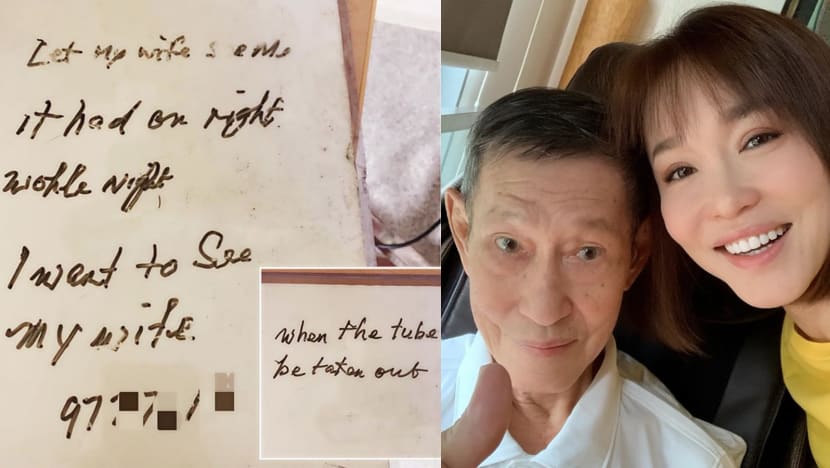 Let my wife
it had on right
wohle night
I want to See
my wife.
when the tube
be taken out